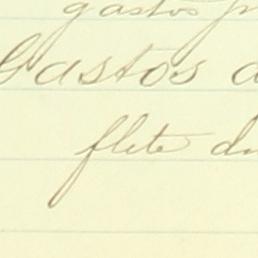 gastos
Gastos d
flete du